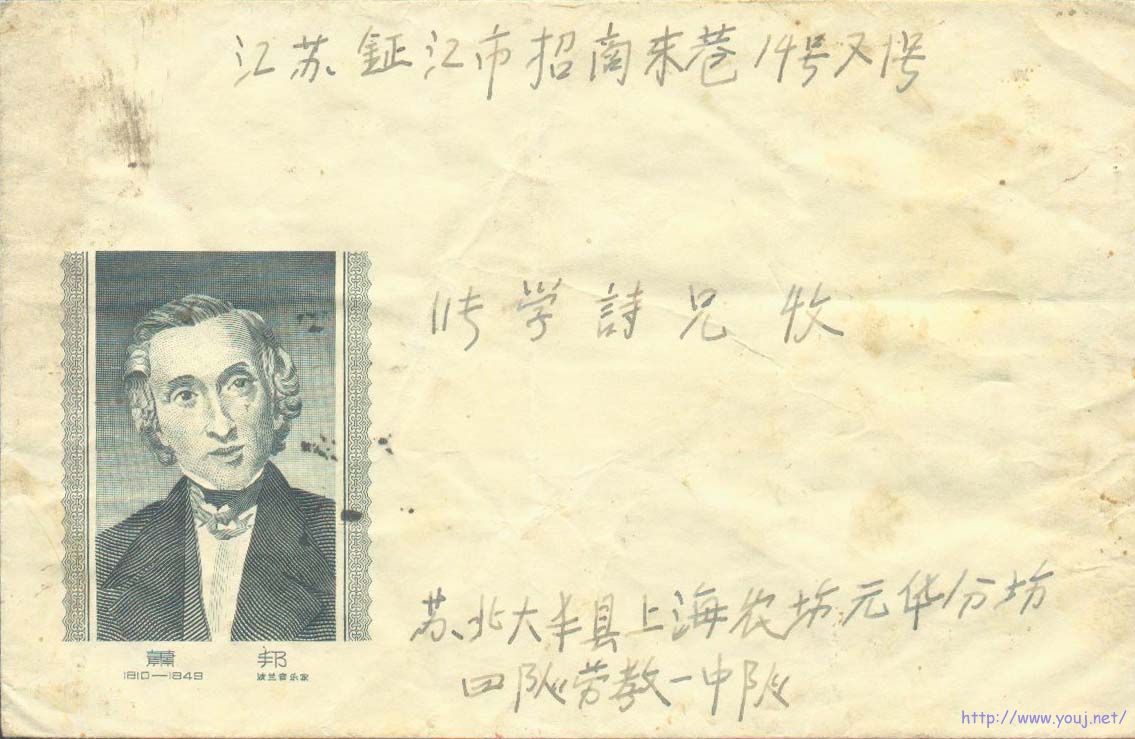 江苏鉦江市招商来巷14号又1号
学詩兄收
萧 邦
1810—1849 波兰音乐家
苏北大丰县上海农场元华分场
四队劳教一中队
http://www.youj.net/